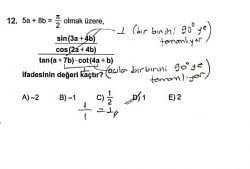 12. 5a + 8b = π/2 olmak üzere,
1 (bir birini 90° ye
tamamlıyor
sin(3a + 4b)
cos(2a + 4b)
tan(a + 7b) · cot(4a + b)
açılar birbirini 90° ye
ifadesinin değeri kaçtır?
A) –2 B) –1 C) 1/2 D) 1 E) 2
1/1 = 1